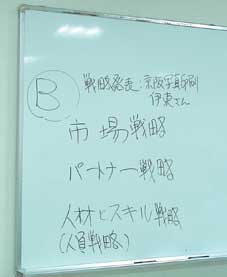 B
戦略発表:京阪写真印刷
伊東さん
市場戦略
パートナー戦略
人材とスキル戦略
(人員戦略)